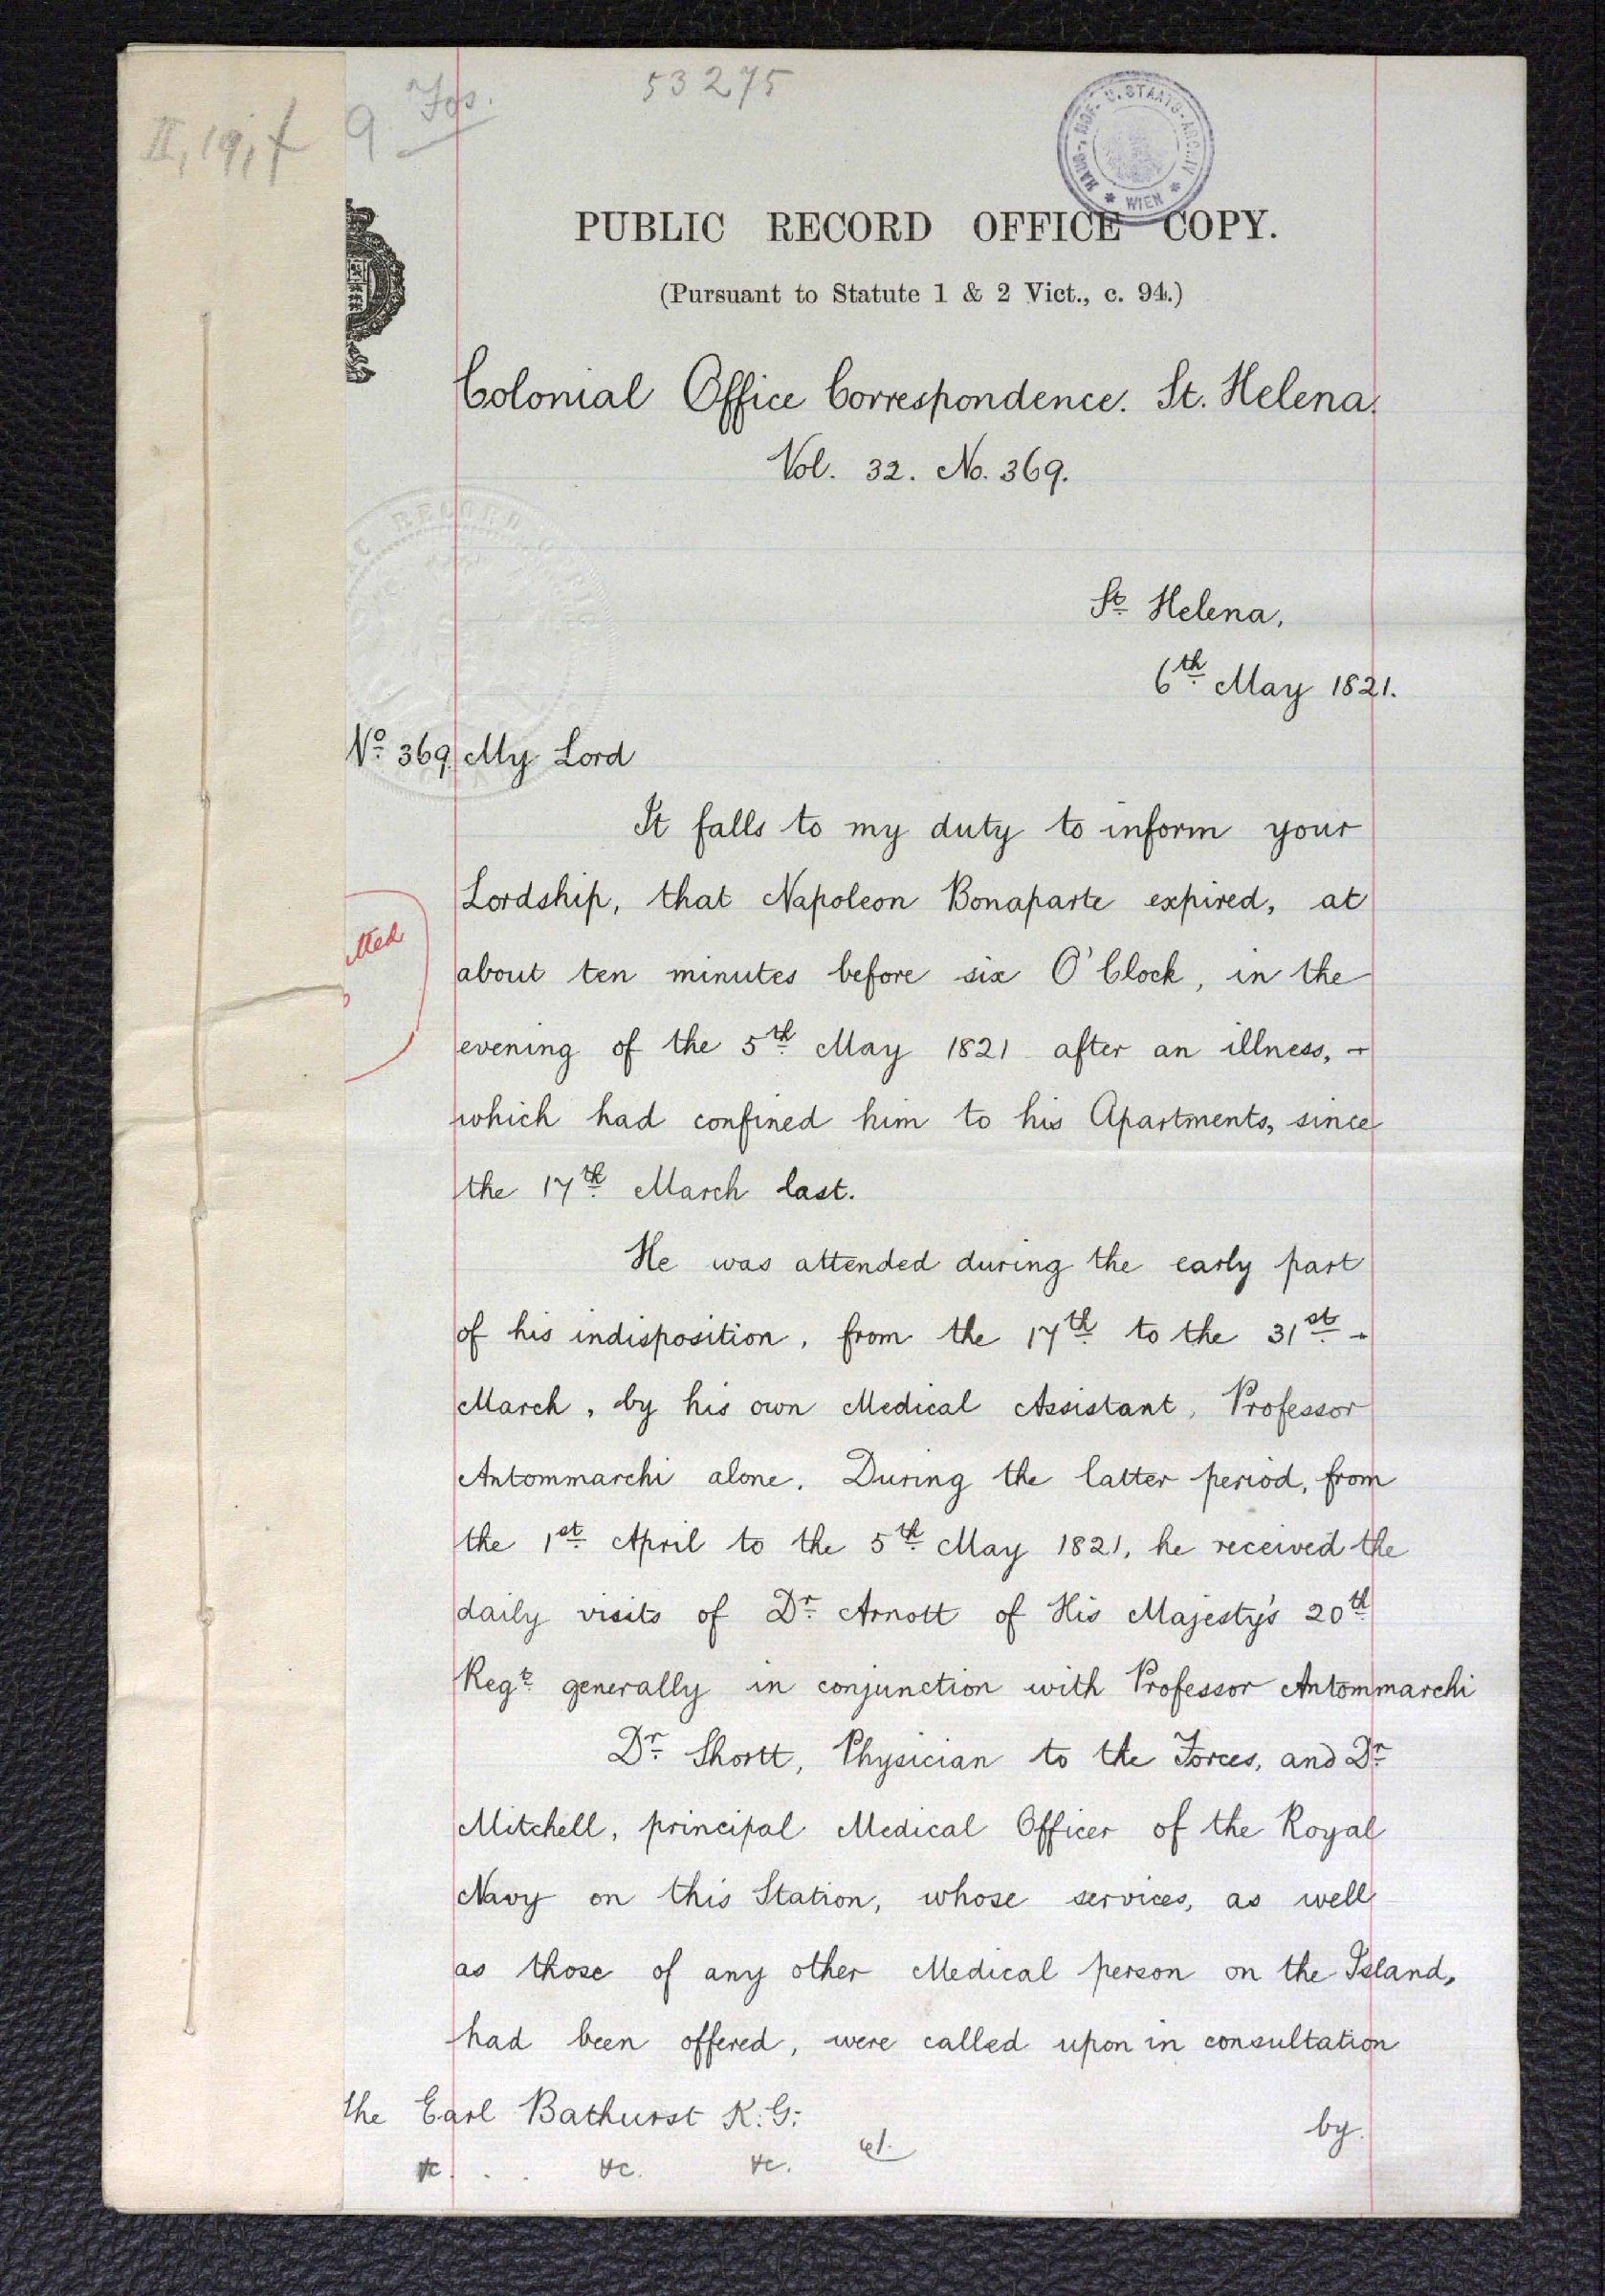 II, 19, f
9 Fos.
53275
HAUS-, HOF- U. STAATS-ARCHIV
* WIEN *
PUBLIC RECORD OFFICE COPY.
(Pursuant to Statute 1 & 2 Vict., c. 94.)
Colonial Office Correspondence. St. Helena.
Vol. 32. No. 369.
St Helena,
6th May 1821.
No 369. My Lord
It falls to my duty to inform your
Lordship, that Napoleon Bonaparte expired, at
about ten minutes before six O'Clock, in the
evening of the 5th May 1821 after an illness, -
which had confined him to his Apartments, since
the 17th March last.
He was attended during the early part
of his indisposition, from the 17th to the 31st -
March, by his own Medical Assistant, Professor
Antommarchi alone. During the latter period, from
the 1st April to the 5th May 1821, he received the
daily visits of Dr Arnott of His Majesty's 20th
Regt generally in conjunction with Professor Antommarchi
Dr Shortt, Physician to the Forces, and Dr
Mitchell, principal Medical Officer of the Royal
Navy on this Station, whose services, as well
as those of any other Medical person on the Island,
had been offered, were called upon in consultation
the Earl Bathurst K.G:
by.
&c. . . &c. &c.